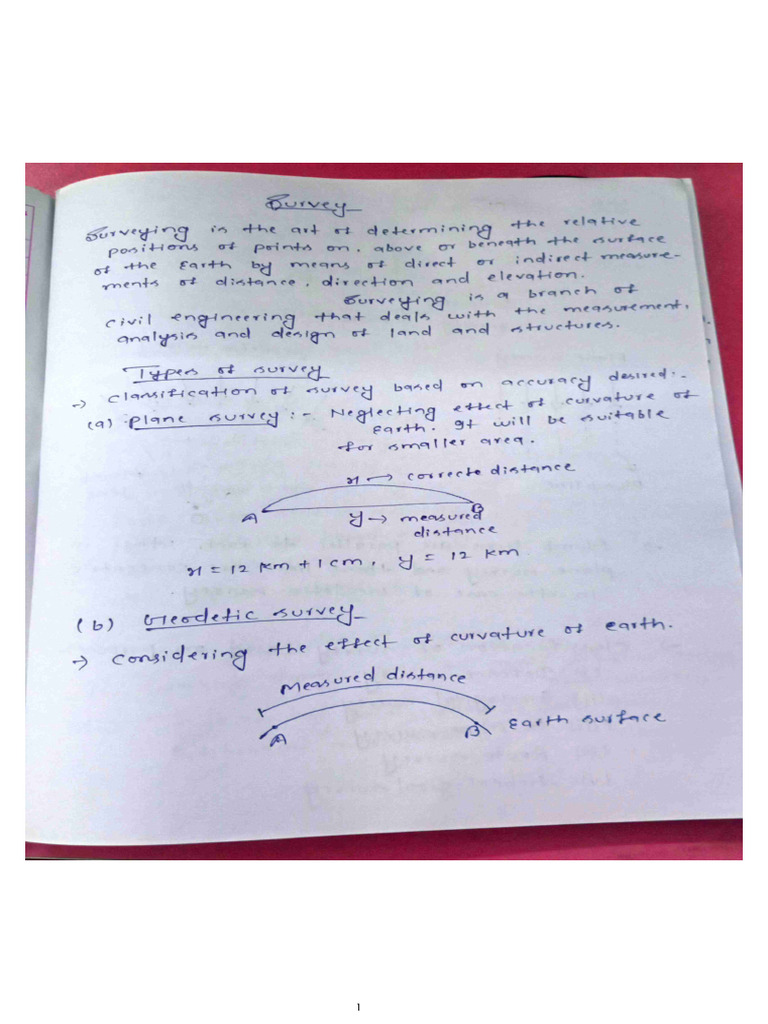 Survey
Surveying is the art of determining the relative
positions of points on, above or beneath the surface
of the Earth by means of direct or indirect measure-
ments of distance, direction and elevation.
Surveying is a branch of
civil engineering that deals with the measurement,
analysis and design of land and structures.
Types of survey
→ Classification of survey based on accuracy desired:-
(a) Plane survey :- Neglecting effect of curvature of
Earth. It will be suitable
for smaller area.
x → correcte distance
A B
y → measured
distance
x = 12 km + 1 cm, y = 12 km
(b) Geodetic survey
→ Considering the effect of curvature of earth.
Measured distance
A B Earth surface
1